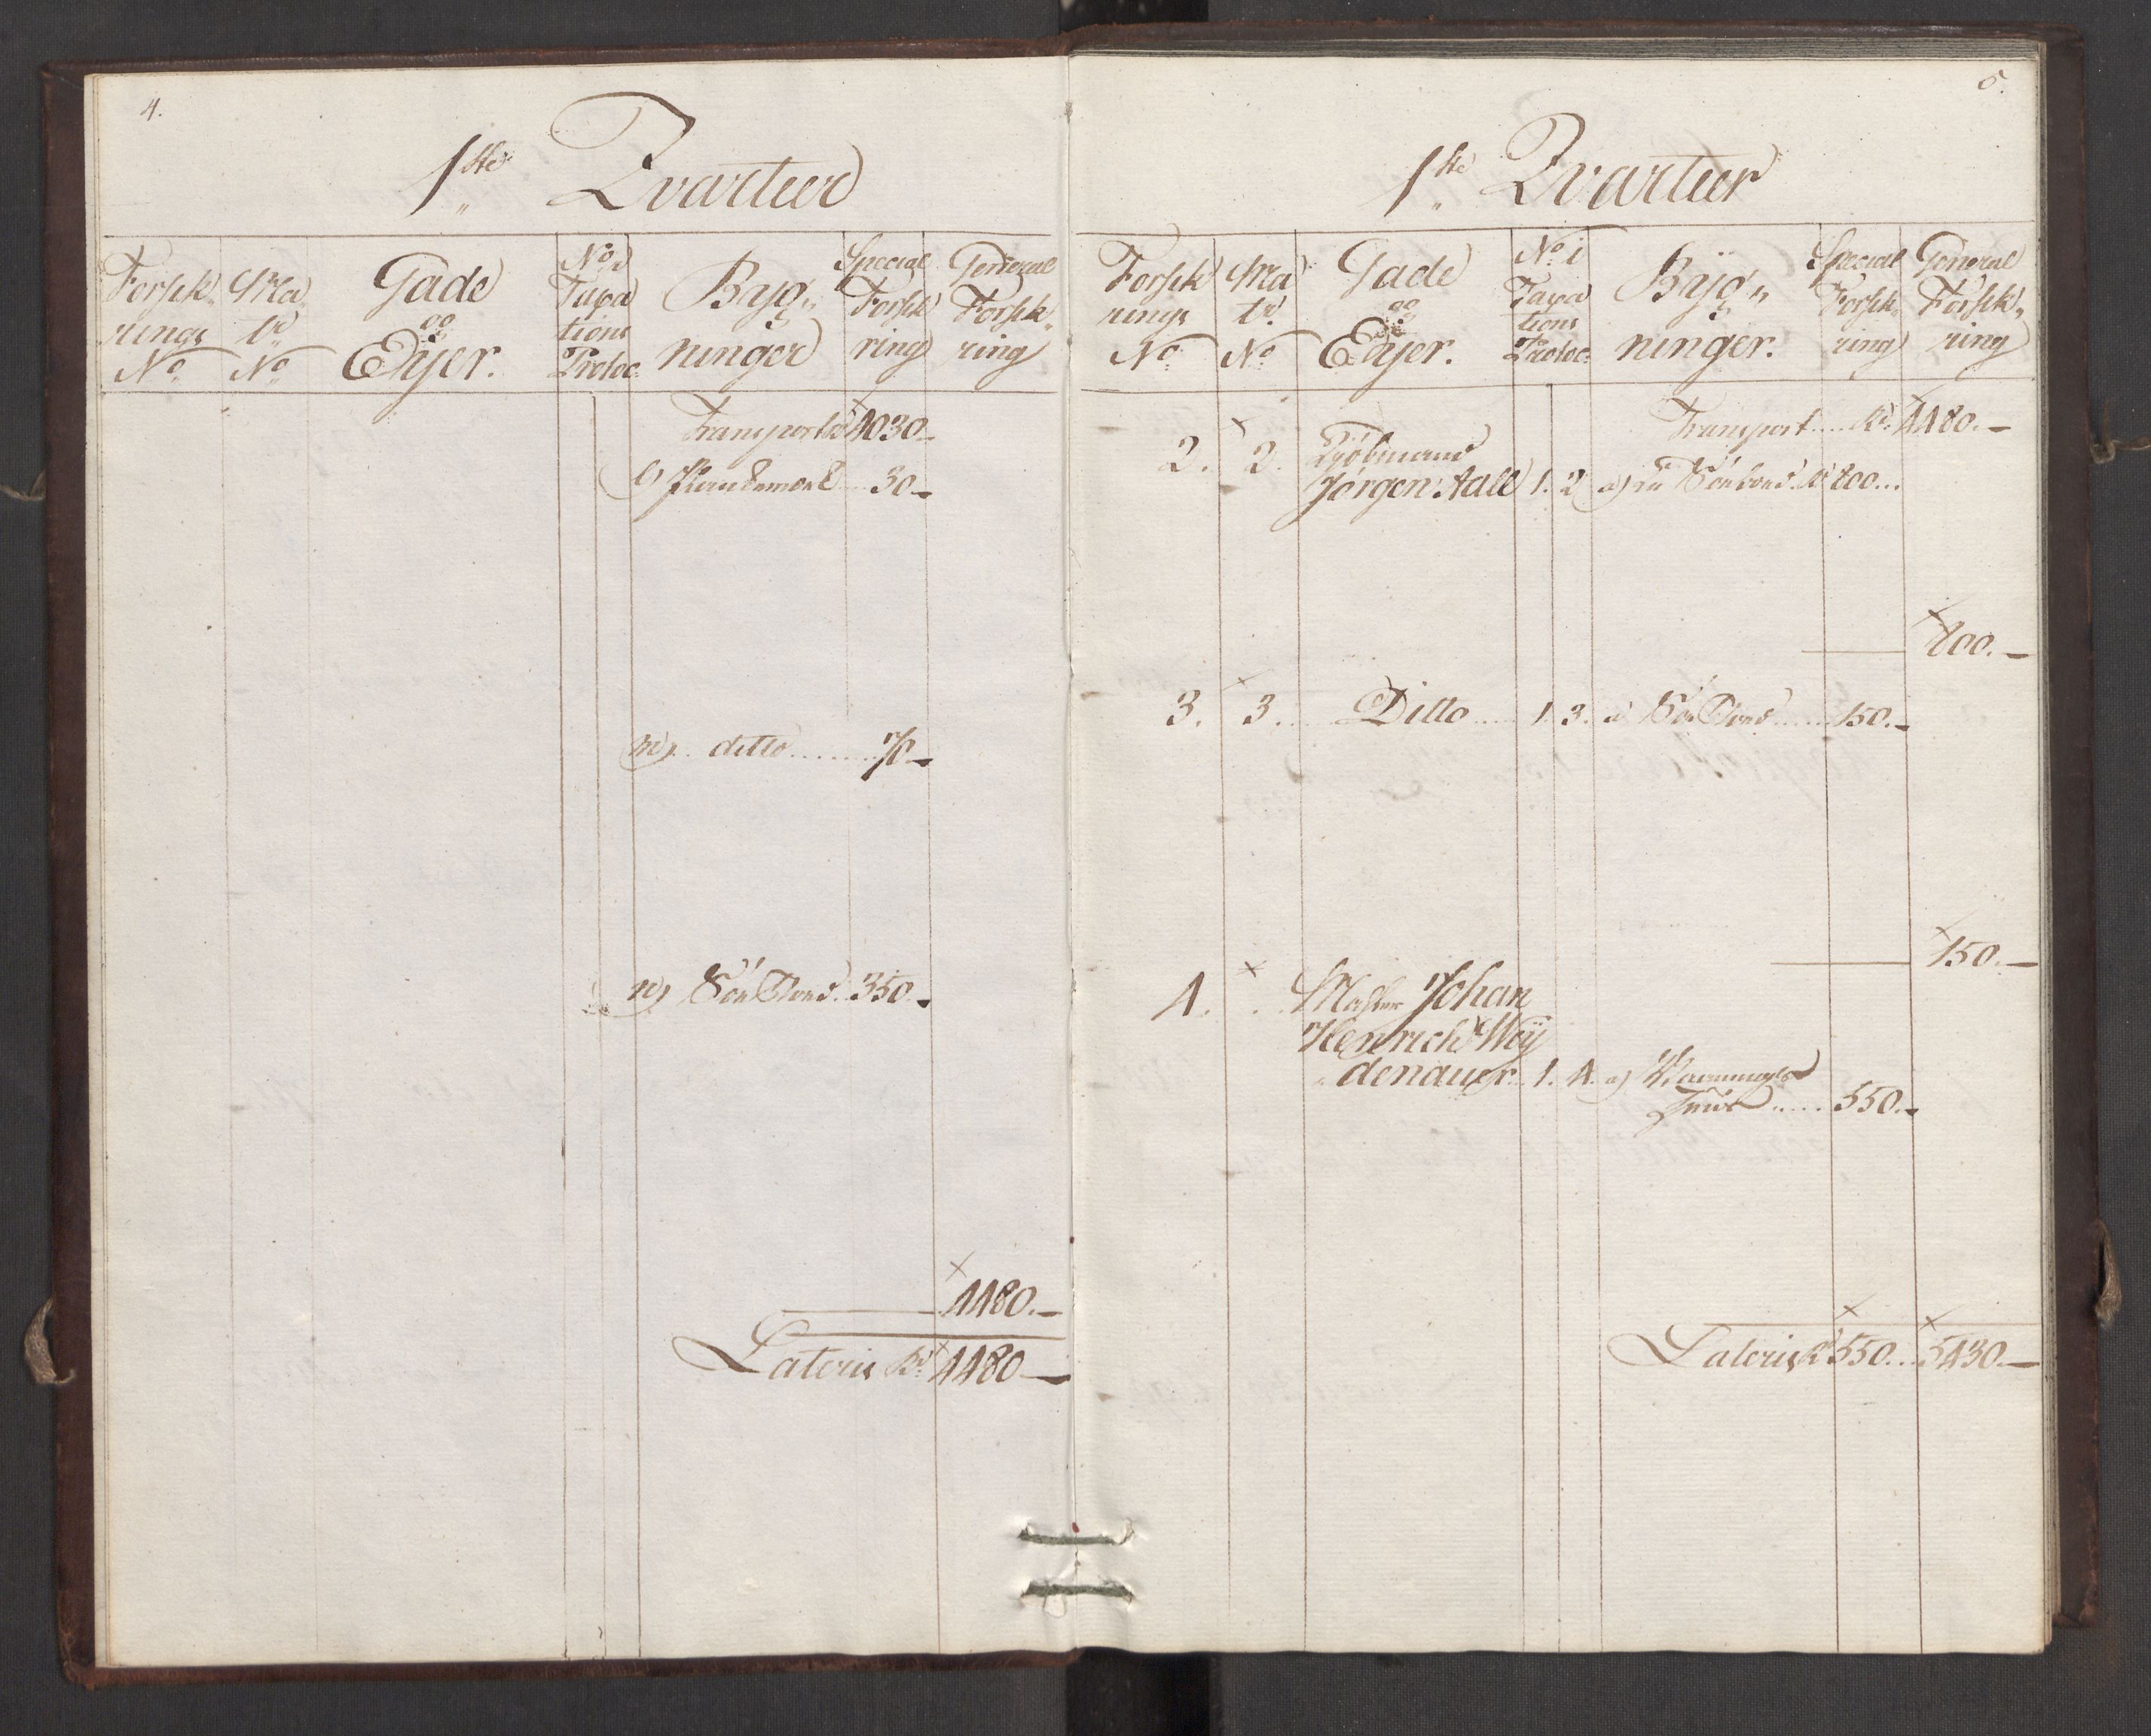 4.
1ste Qvarteer
Forsik„
rings
No.
Ma
tr.
No.
Gade
og
Eijer.
No. i
Taxa
tions
Protoc:
Byg„
ninger
Special
Forsik
ring
General
Forsik„
ring
Transport Rd 4030.—
l) Plankeværk 30.—
m) ditto ........ 70.—
n) Søe Boed. 350.—
4480.—
Lateris Rd. 4480.—
5.
1ste Qvarteer
Forsik
rings
No.
Ma
tr.
No.
Gade
og
Eijer.
No. i
Taxa
tions
Protoc:
Bÿg„
ninger.
Special
Forsik„
ring
General
Forsik„
ring
Transport .... Rd. 4480.—
2. 2. Kjøbmand
Jørgen Aall 1. 2 a) En Søeboed. Rd 800...
800.—
3. 3. Ditto 1. 3. a) Søe Boed ...... 150.—
150.—
4. Johan
Henrich Weÿ
denauer. 1. 4. a) Vaanings
Huus ..... 550.—
Lateris Rd 550... 5430.—